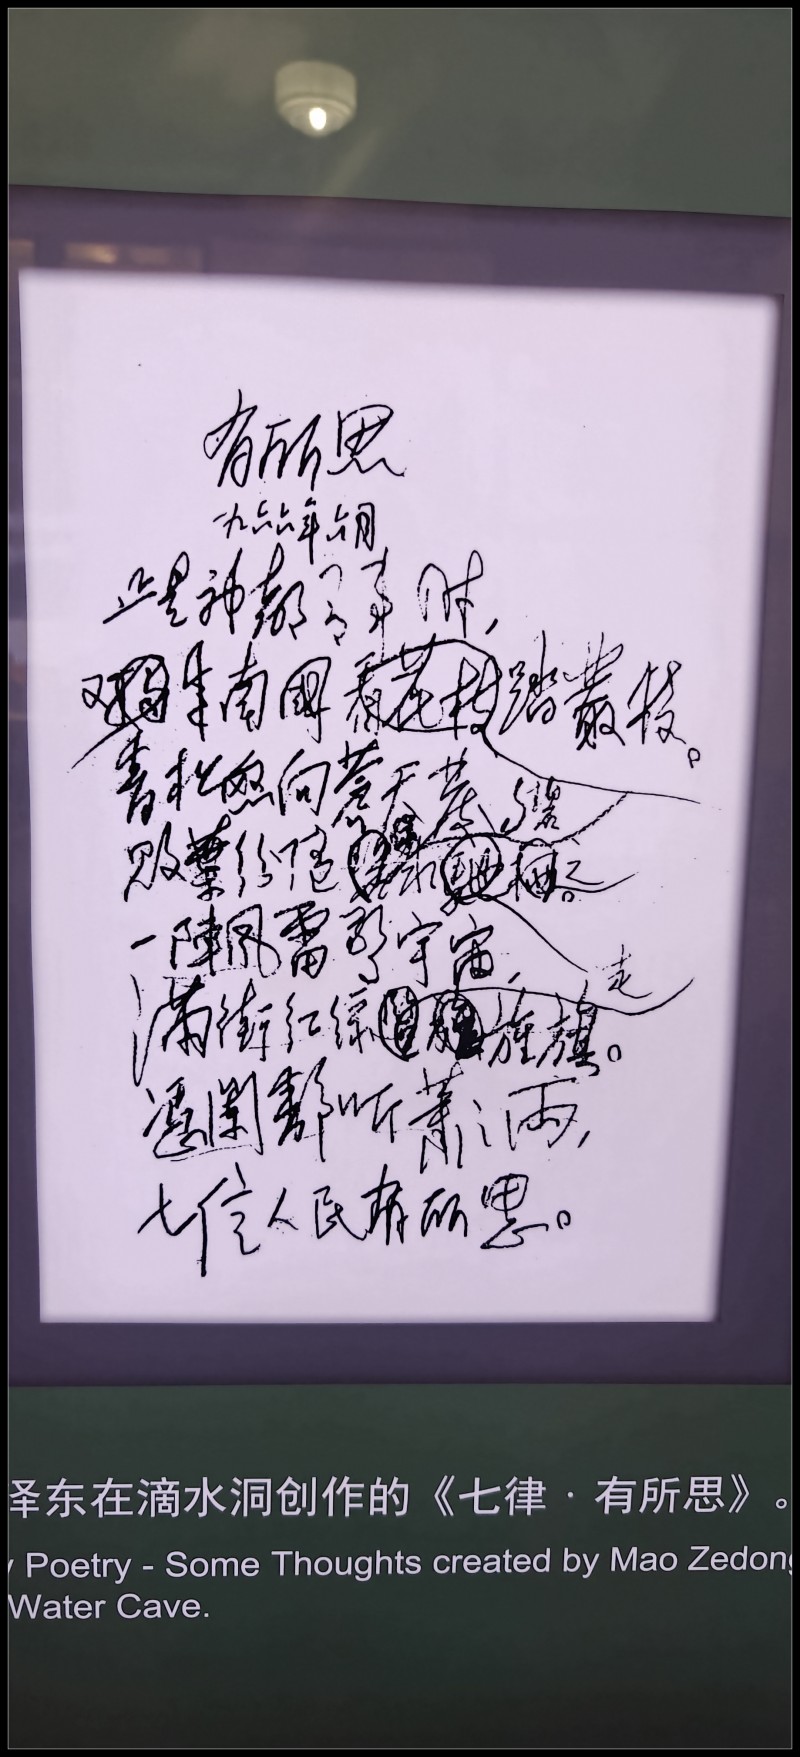 有所思
一九六六年六月
正是神都有事时，
又来南國看花枝踏叢枝。
青松怒向蒼天發
败葉纷随碧水之。
一阵风雷驚宇宙，
走
满街红绿旌旗。
憑阑静听萧〻雨，
七亿人民有所思。
泽东在滴水洞创作的《七律·有所思》。
y Poetry - Some Thoughts created by Mao Zedong
Water Cave.